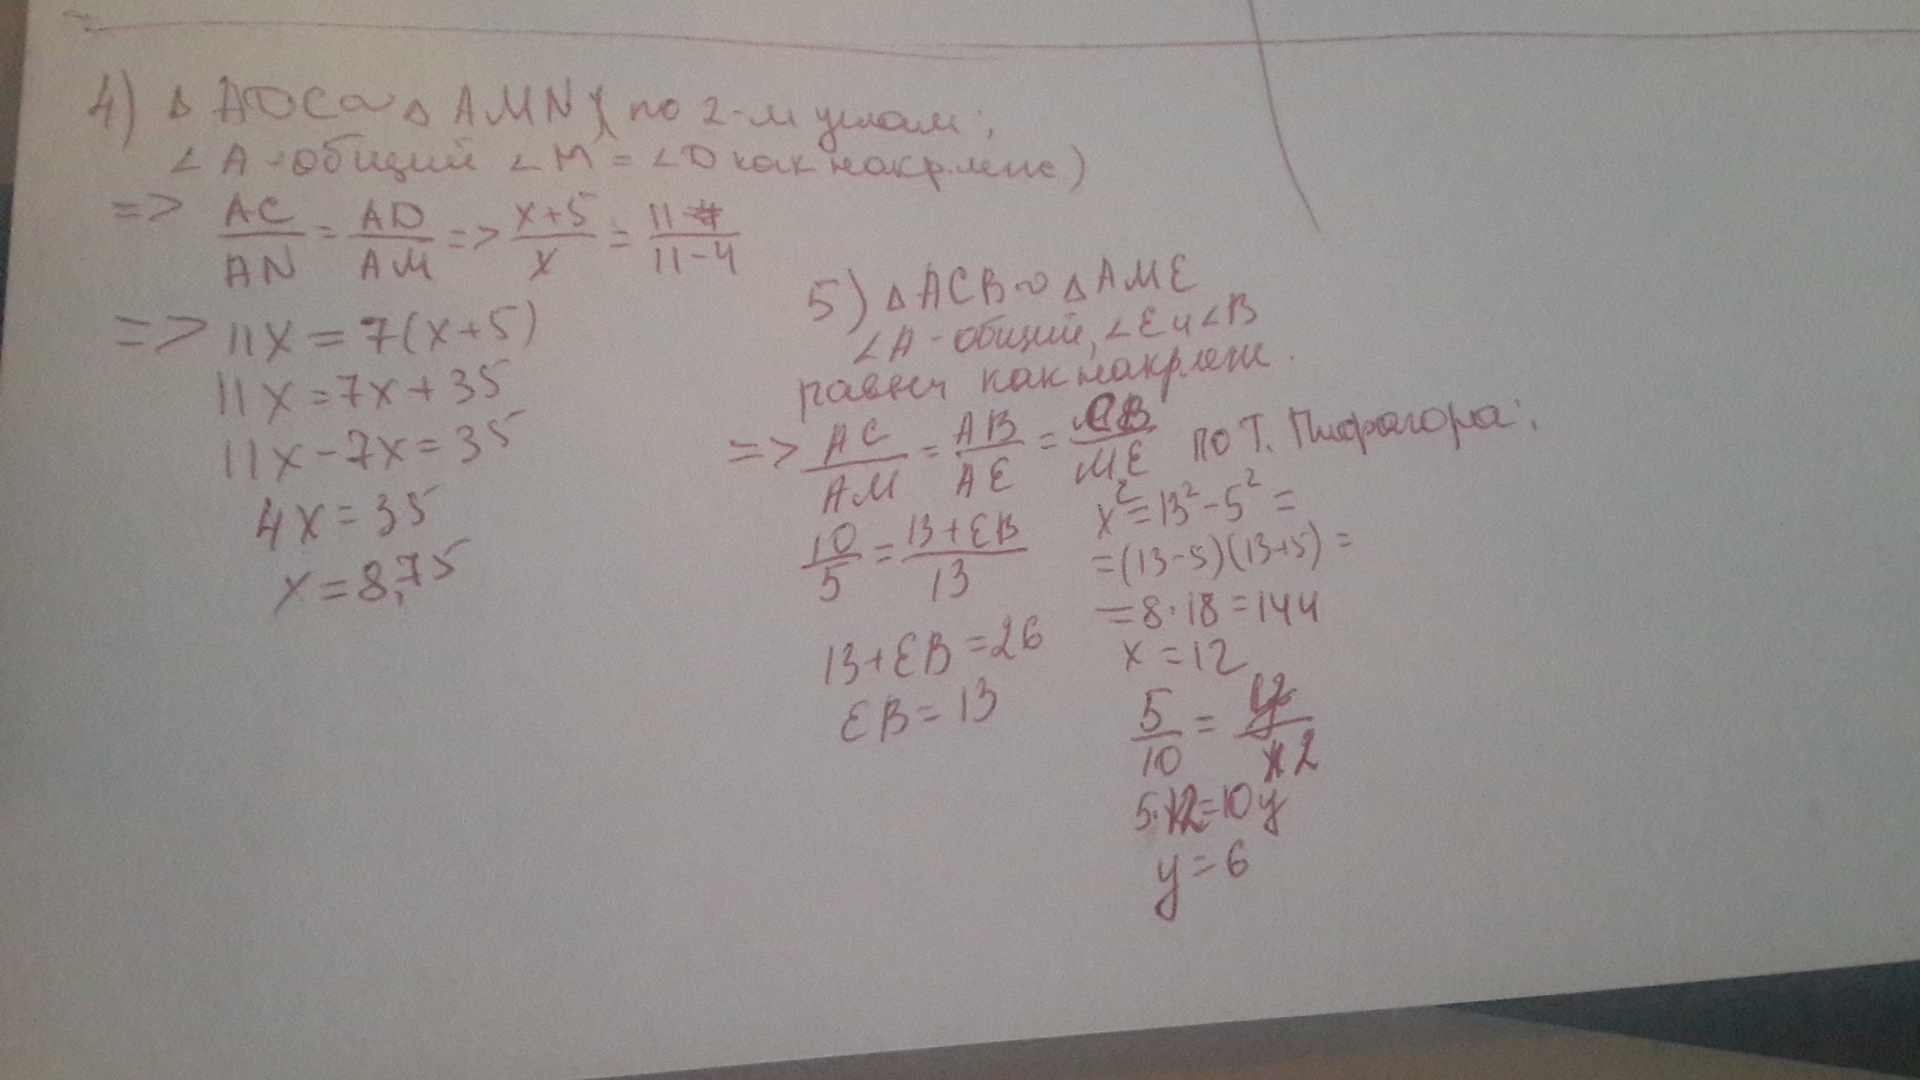 4) △ ADC ∾ △ AMN (по 2-м углам;
∠A-общий ∠M = ∠D как накр.леж)
=> AC/AN = AD/AM => x+5/x = 11/11-4
=> 11x = 7(x+5)
11x = 7x + 35
11x - 7x = 35
4x = 35
x = 8,75
5) △ACB ∾ △AME
∠A - общий, ∠E и ∠B
равны как накрлеж.
=> AC/AM = AB/AE = CB/ME
10/5 = 13+EB/13
13+EB=26
EB=13
по Т. Пифагора:
x²=13²-5²=
=(13-5)(13+5)=
=8·18=144
x=12
5/10 = y/12
5·12=10y
y=6